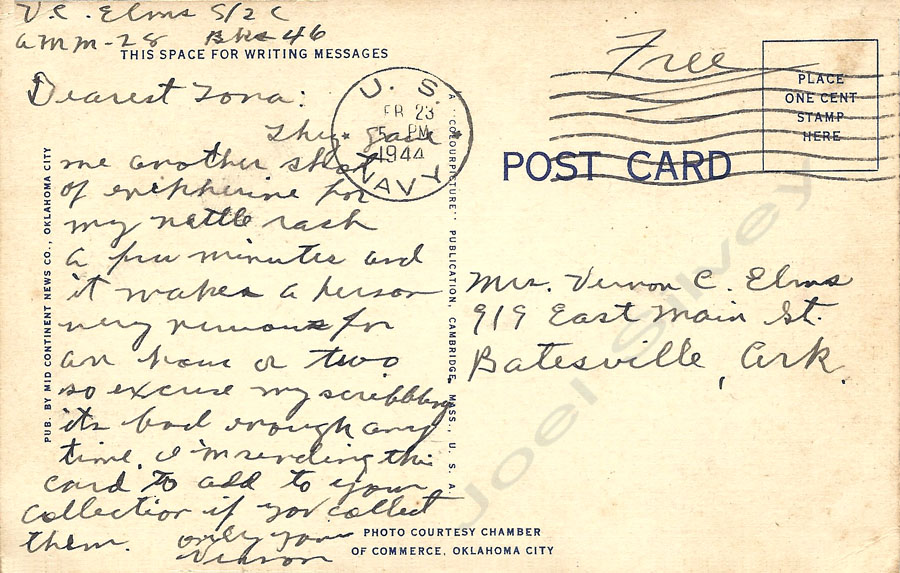 V.C. Elms S/2 C
AMM-28 Bks 46
THIS SPACE FOR WRITING MESSAGES
Dearest Iona:
They gave
me another shot
of enepherine for
my nettle rash
a few minutes and
it makes a person
very nervous for
an hour or two
so excuse my scribbling
its bad enough any
time. I'm sending this
card to add to your
collection if you collect
them. only yours
Vernon
PUB. BY MID CONTINENT NEWS CO., OKLAHOMA CITY
U. S.
FEB 23
5 PM
1944
NAVY
A "COLOURPICTURE" PUBLICATION, CAMBRIDGE, MASS., U. S. A.
Free
PLACE
ONE CENT
STAMP
HERE
POST CARD
Mrs. Vernon C. Elms
919 East Main St.
Batesville, Ark.
PHOTO COURTESY CHAMBER
OF COMMERCE, OKLAHOMA CITY
Joel Silvey